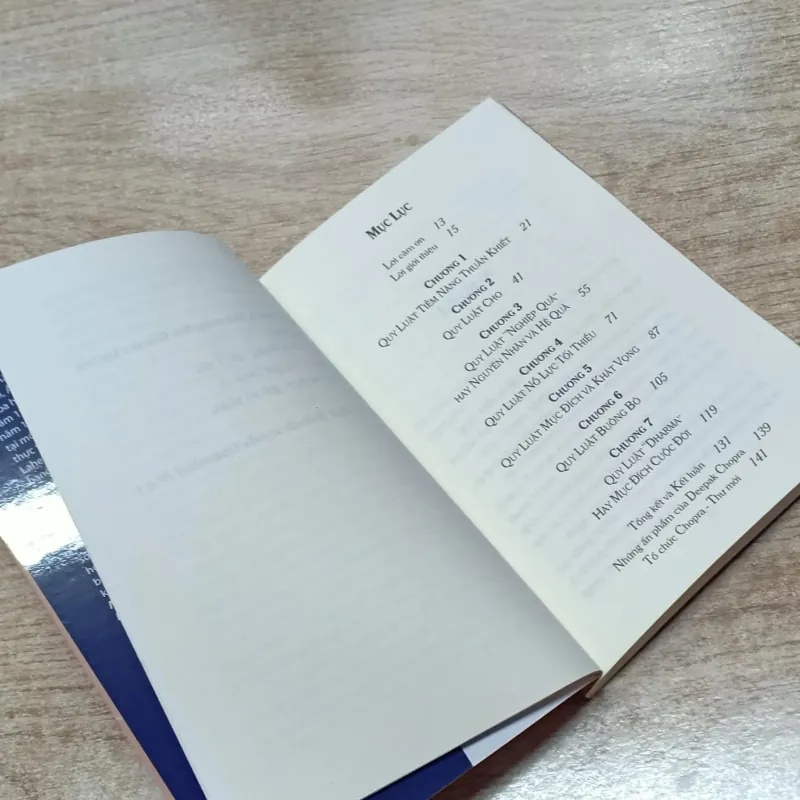 MỤC LỤC
Lời cảm ơn 13
Lời giới thiệu 15
CHƯƠNG 1
QUY LUẬT TIỀM NĂNG THUẦN KHIẾT 21
CHƯƠNG 2
QUY LUẬT CHO 41
CHƯƠNG 3
QUY LUẬT "NGHIỆP QUẢ"
HAY NGUYÊN NHÂN VÀ HỆ QUẢ 55
CHƯƠNG 4
QUY LUẬT NỖ LỰC TỐI THIỂU 71
CHƯƠNG 5
QUY LUẬT MỤC ĐÍCH VÀ KHÁT VỌNG 87
CHƯƠNG 6
QUY LUẬT BUÔNG BỎ 105
CHƯƠNG 7
QUY LUẬT "DHARMA"
HAY MỤC ĐÍCH CUỘC ĐỜI 119
Tổng kết và Kết luận 131
Những ấn phẩm của Deepak Chopra 139
Tổ chức Chopra - Thư mời 141
năm
tại
thực